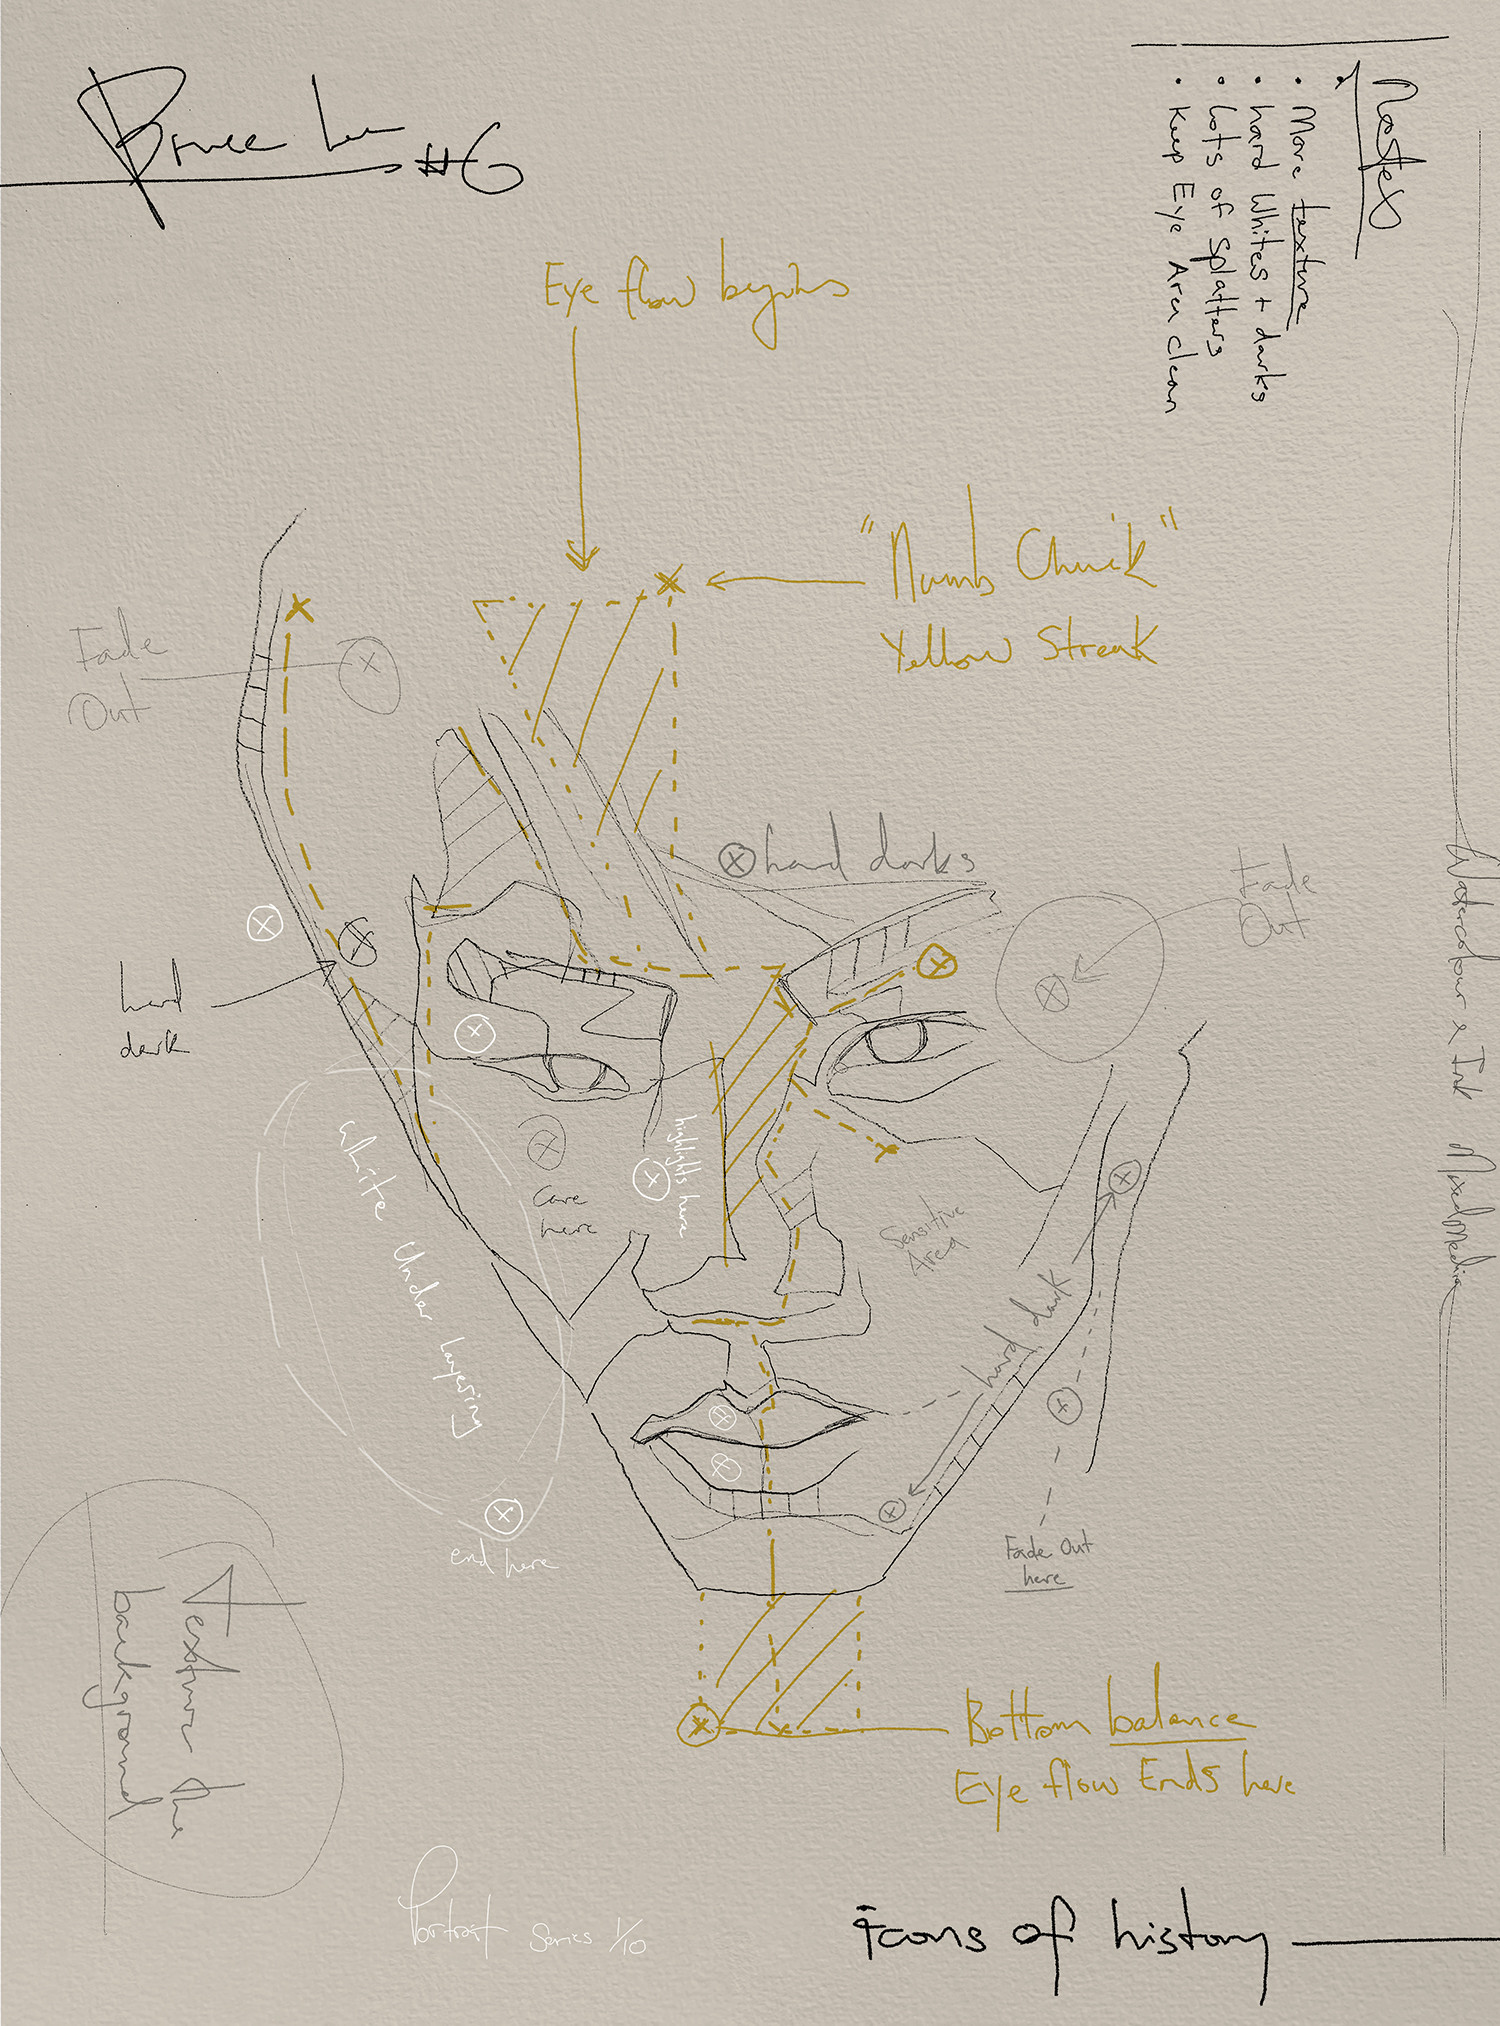 Bruce Lee #6
Notes
• More texture
• hard Whites + darks
• Lots of Splatters
• Keep Eye Area clean
Eye flow begins
"Numb Chuck"
Yellow Streak
Fade
Out
hard darks
Fade
Out
hard
dark
Watercolour & Ink Mixed Media
highlights here
White Under Layering
Care
here
Sensitive
Area
hard dark
end here
Fade Out
here
Texture the
background
Bottom balance
Eye flow Ends here
Portrait Series 1/10
icons of history